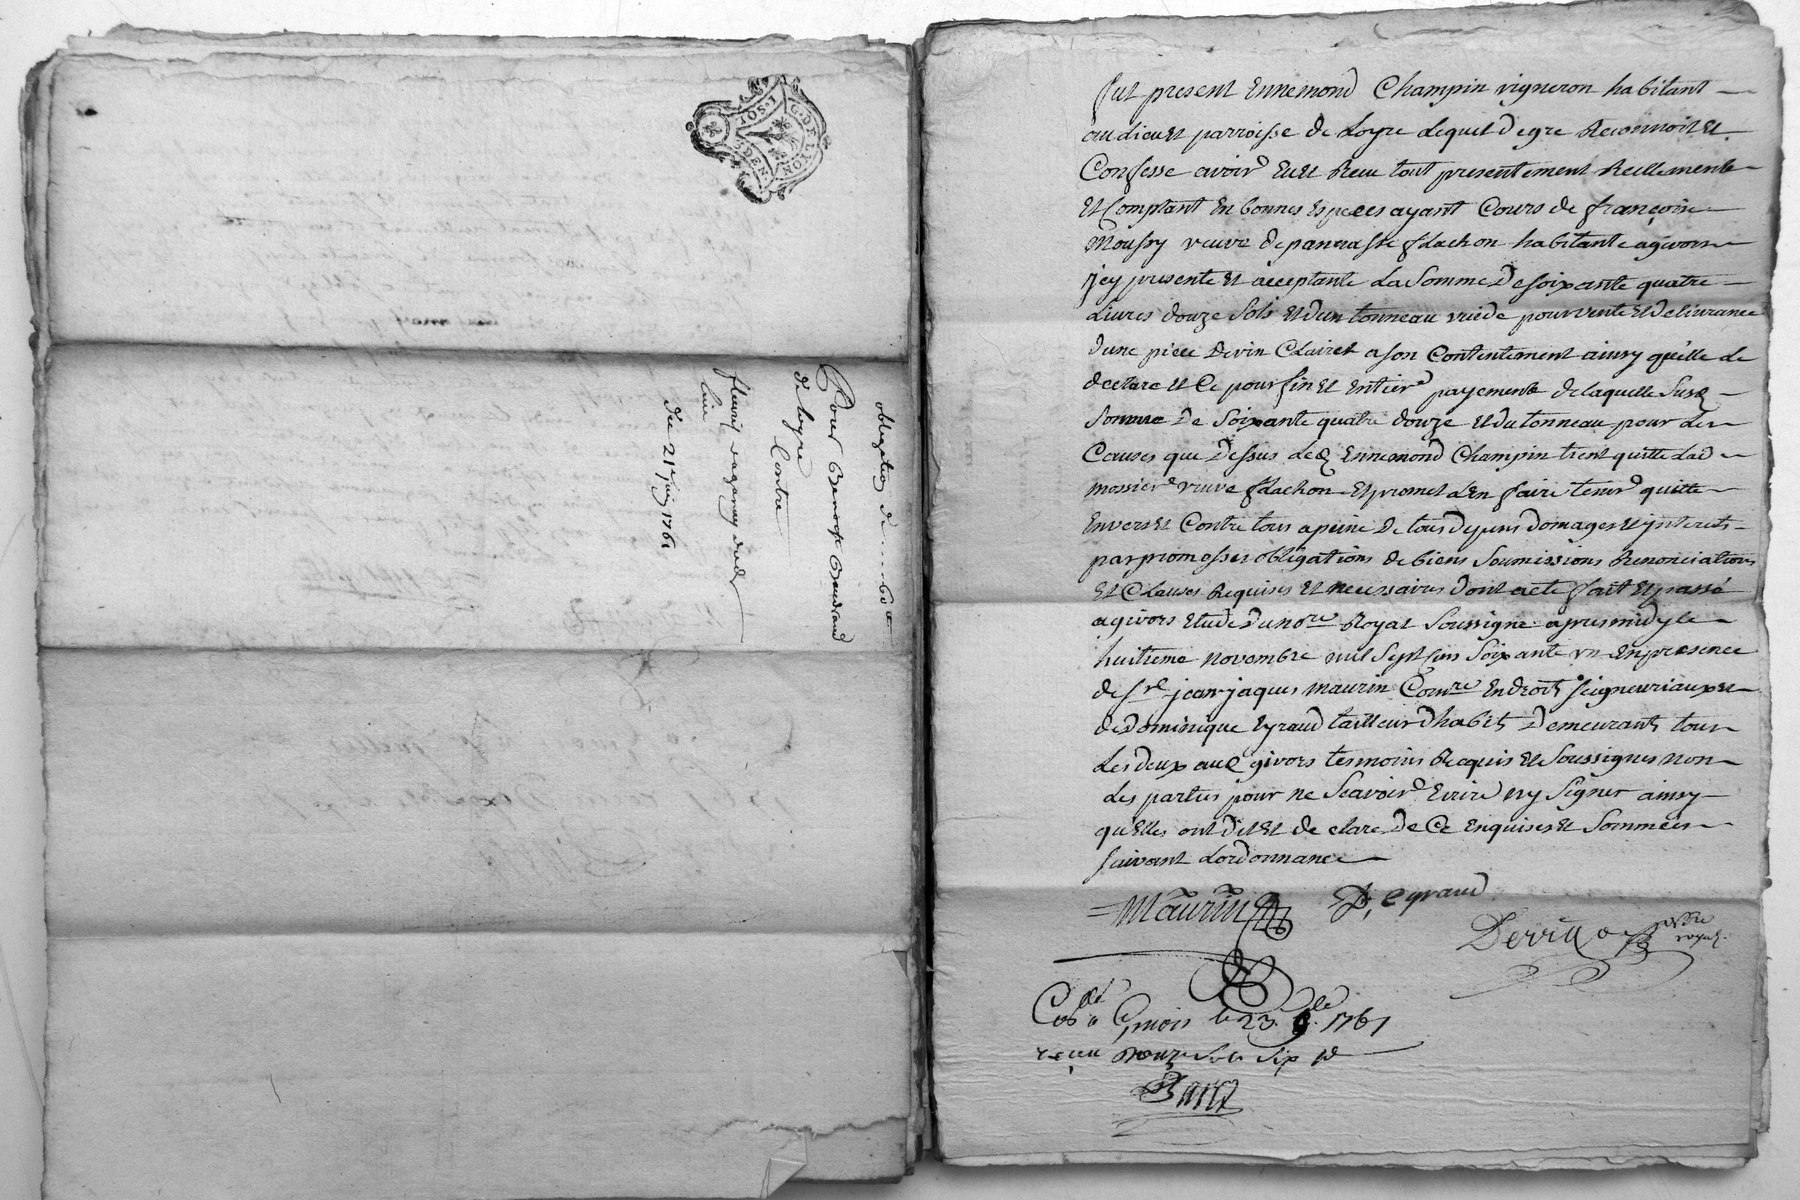 G. DE LYON
10S. 1
S DEN.
obligation de 60ᵗᵗ
Pour Benoist Baudrand
de loyre
Contre
fleury
du 21 juin 1761
fut present Ennemond Champin vigneron habitant
au lieu et parroisse de Loyre Lequel de gre Reconnoit et
Confesse avoir Eu et Recu tout presentement Reellement
et Comptant En bonnes Especes ayant Cours de françoise
Moussy veuve de pancrasse flachon habitante a givors
jcy presente et acceptante La Somme de soixante quatre
Livres douze Sols et dun tonneau vuide pour vente et delivrance
dune piece de vin Clairet a son Contentement ainsy quelle de
declare et Ce pour fin et Entier payement de laquelle Susd
Somme De Soixante quatre douze et du tonneau pour Les
Causes que Dessus Led Ennemond Champin tient quitte Lad
veuve flachon Et promet L'En faire tenir quitte
Envers et Contre tous a peine De tous depens domages et jnterets
par promesses obligations de biens Soumissions Renonciations
et Clauses Requises et necessaires dont acte fait Et passé
a givors Etude du noʳᵉ Royal Soussigne apres midy le
huitieme novembre mil Sept Cens Soixante un En presence
de sʳ jean jaques maurin Comʳᵉ En droits seigneuriaux et
de Dominique Eyraud tailleur dhabits Demeurants tous
Les deux aud givors temoins Requis et Soussignes non
Les parties pour ne Scavoir Ecrire ny Signer ainsy
qu'Elles ont dit et de clare De Ce Enquises et Sommées
suivant Lordonnance
Maurin D, Eyraud
royal
Coₙ a Givors le 23 9ᵇʳᵉ 1761
reçu douze sols six d